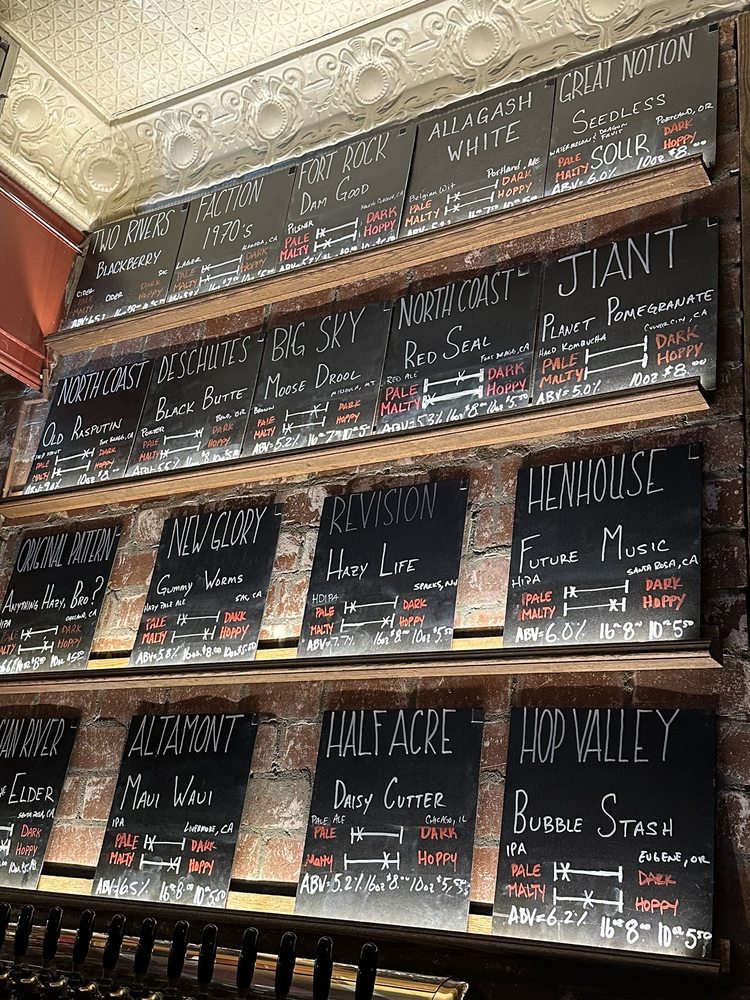 TWO RIVERS
BLACKBERRY
CIDER SAC
PALE DARK
MALTY ODER HOPPY
FACTION
1970's
LAGER ALAMEDA, CA
PALE DARK
MALTY HOPPY
FORT ROCK
DAM GOOD
PILSNER
PALE DARK
MALTY HOPPY
ALLAGASH
WHITE
Belgian Wit Portland, ME
PALE DARK
MALTY HOPPY
GREAT NOTION
SEEDLESS
WATERMELON & DRAGON FRUIT PORTLAND, OR
PALE SOUR DARK
MALTY HOPPY
ABV= 6.0% 10oz $8.00
NORTH COAST
OLD RASPUTIN
FORT BRAGG, CA
PALE DARK
MALTY HOPPY
ABV= 9.0% 10oz $8
DESCHUTES
BLACK BUTTE
PORTER BEND, OR
PALE DARK
MALTY HOPPY
BIG SKY
MOOSE DROOL
BROWN MISSOULA, MT
PALE DARK
MALTY HOPPY
ABV= 5.2% 16oz 7 10oz 5
NORTH COAST
RED SEAL
RED ALE FORT BRAGG, CA
PALE DARK
MALTY HOPPY
ABV= 5.3% 16oz 8 10oz 5.50
JIANT
PLANET POMEGRANATE
HARD KOMBUCHA CULVER CITY, CA
PALE DARK
MALTY HOPPY
ABV= 5.0% 10oz $8.00
ORIGINAL PATTERN
ANYTHING HAZY, BRO?
IPA OAKLAND, CA
PALE DARK
MALTY HOPPY
16oz $8 10oz $5.50
NEW GLORY
GUMMY WORMS
HAZY PALE ALE SAC, CA
PALE DARK
MALTY HOPPY
ABV= 5.8% 16oz $8.00 10oz $5.50
REVISION
HAZY LIFE
HDIPA SPARKS, NV
PALE DARK
MALTY HOPPY
ABV= 7.7% 16oz $8 10oz $5.50
HENHOUSE
FUTURE MUSIC
HIPA SANTA ROSA, CA
PALE DARK
MALTY HOPPY
ABV= 6.0% 16oz 8.00 10oz 5.50
RIVER
ELDER
SANTA ROSA, CA
DARK
HOPPY
ALTAMONT
MAUI WAUI
IPA LIVERMORE, CA
PALE DARK
MALTY HOPPY
ABV= 6.5% 16oz 8.00 10oz 5.50
HALF ACRE
DAISY CUTTER
PALE ALE CHICAGO, IL
PALE DARK
Malty HOPPY
ABV= 5.2% 16oz $8.00 10oz $5.50
HOP VALLEY
BUBBLE STASH
IPA EUGENE, OR
PALE DARK
MALTY HOPPY
ABV= 6.2% 16oz 8.00 10oz 5.50